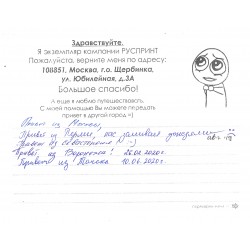 Здравствуйте.
Я экземпляр компании РУСПРИНТ
Пожалуйста, верните меня по адресу:
108851, Москва, г.о. Щербинка,
ул. Юбилейная, д.3А
Большое спасибо!
А еще я люблю путешествовать.
С моей помощью Вы можете передать
привет в другой город =)
из
Привет из Перми,
Привет из
Привет из Воронежа! 26.02.2020г
Привет из Томска 10.06.2020г.